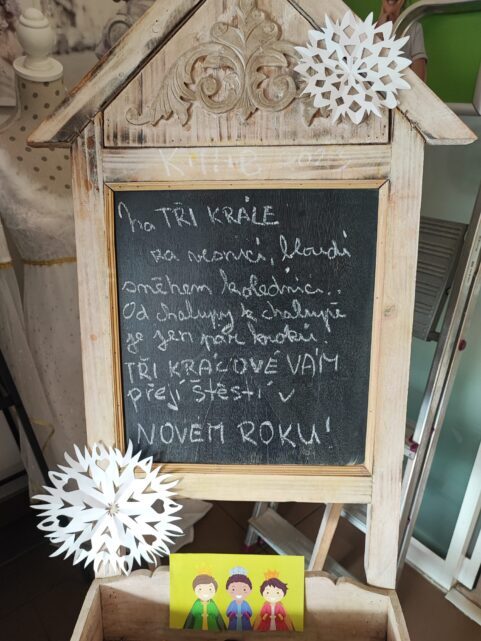 Na TŘI KRÁLE
za vesnicí, bloudí
sněhem koledníci..
Od chalupy k chalupě
je jen pár kroků.
TŘI KRÁLOVÉ VÁM
přejí štěstí v
NOVÉM ROKU!